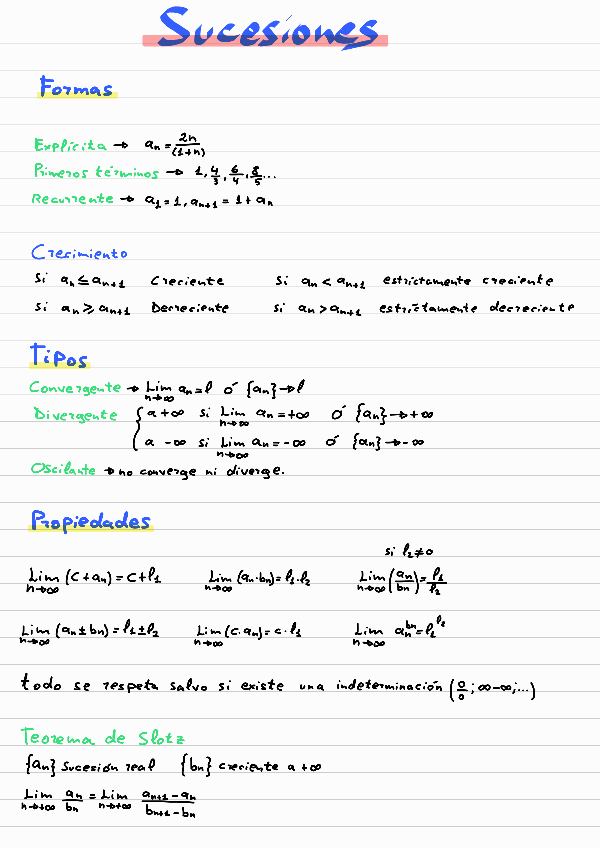 Sucesiones
Formas
Explícita → aₙ = 2n/(1+n)
Primeros términos → 1, 4/3, 6/4, 8/5...
Recurrente → a₁ = 1, aₙ₊₁ = 1 + aₙ
Crecimiento
si aₙ ≤ aₙ₊₁ Creciente si aₙ < aₙ₊₁ estrictamente creciente
si aₙ ≥ aₙ₊₁ Decreciente si aₙ > aₙ₊₁ estrictamente decreciente
Tipos
Convergente → Lim n→∞ aₙ = l ó {aₙ} → l
Divergente { a +∞ si Lim n→∞ aₙ = +∞ ó {aₙ} → +∞
a -∞ si Lim n→∞ aₙ = -∞ ó {aₙ} → -∞
Oscilante → no converge ni diverge.
Propiedades
si l₂ ≠ 0
Lim n→∞ (c + aₙ) = c + l₁ Lim n→∞ (aₙ·bₙ) = l₁·l₂ Lim n→∞ (aₙ/bₙ) = l₁/l₂
Lim n→∞ (aₙ ± bₙ) = l₁ ± l₂ Lim n→∞ (c·aₙ) = c·l₁ Lim n→∞ aₙ^bₙ = l₁^l₂
todo se respeta salvo si existe una indeterminación (0/0; ∞-∞; ...)
Teorema de Slotz
{aₙ} Sucesión real {bₙ} creciente a +∞
Lim n→+∞ aₙ/bₙ = Lim n→+∞ (aₙ₊₁ - aₙ)/(bₙ₊₁ - bₙ)